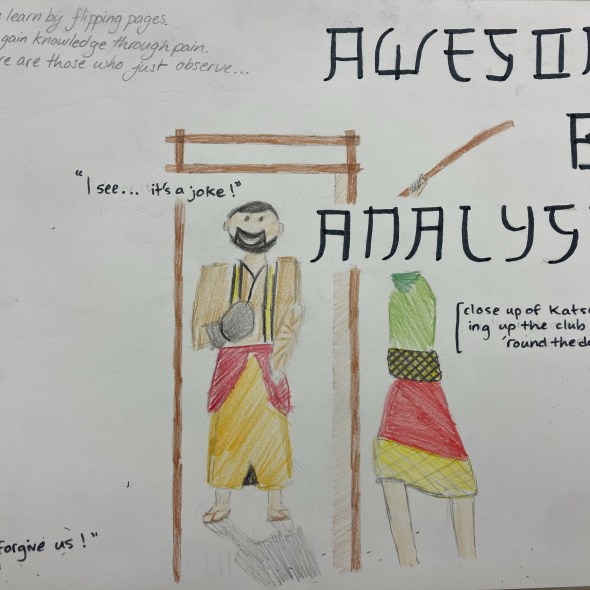 learn by flipping pages.
gain knowledge through pain.
are those who just observe...
AWESO
"I see... it's a joke!"
ANALYS
[close up of Kats
ing up the club
'round the d
forgive us!"